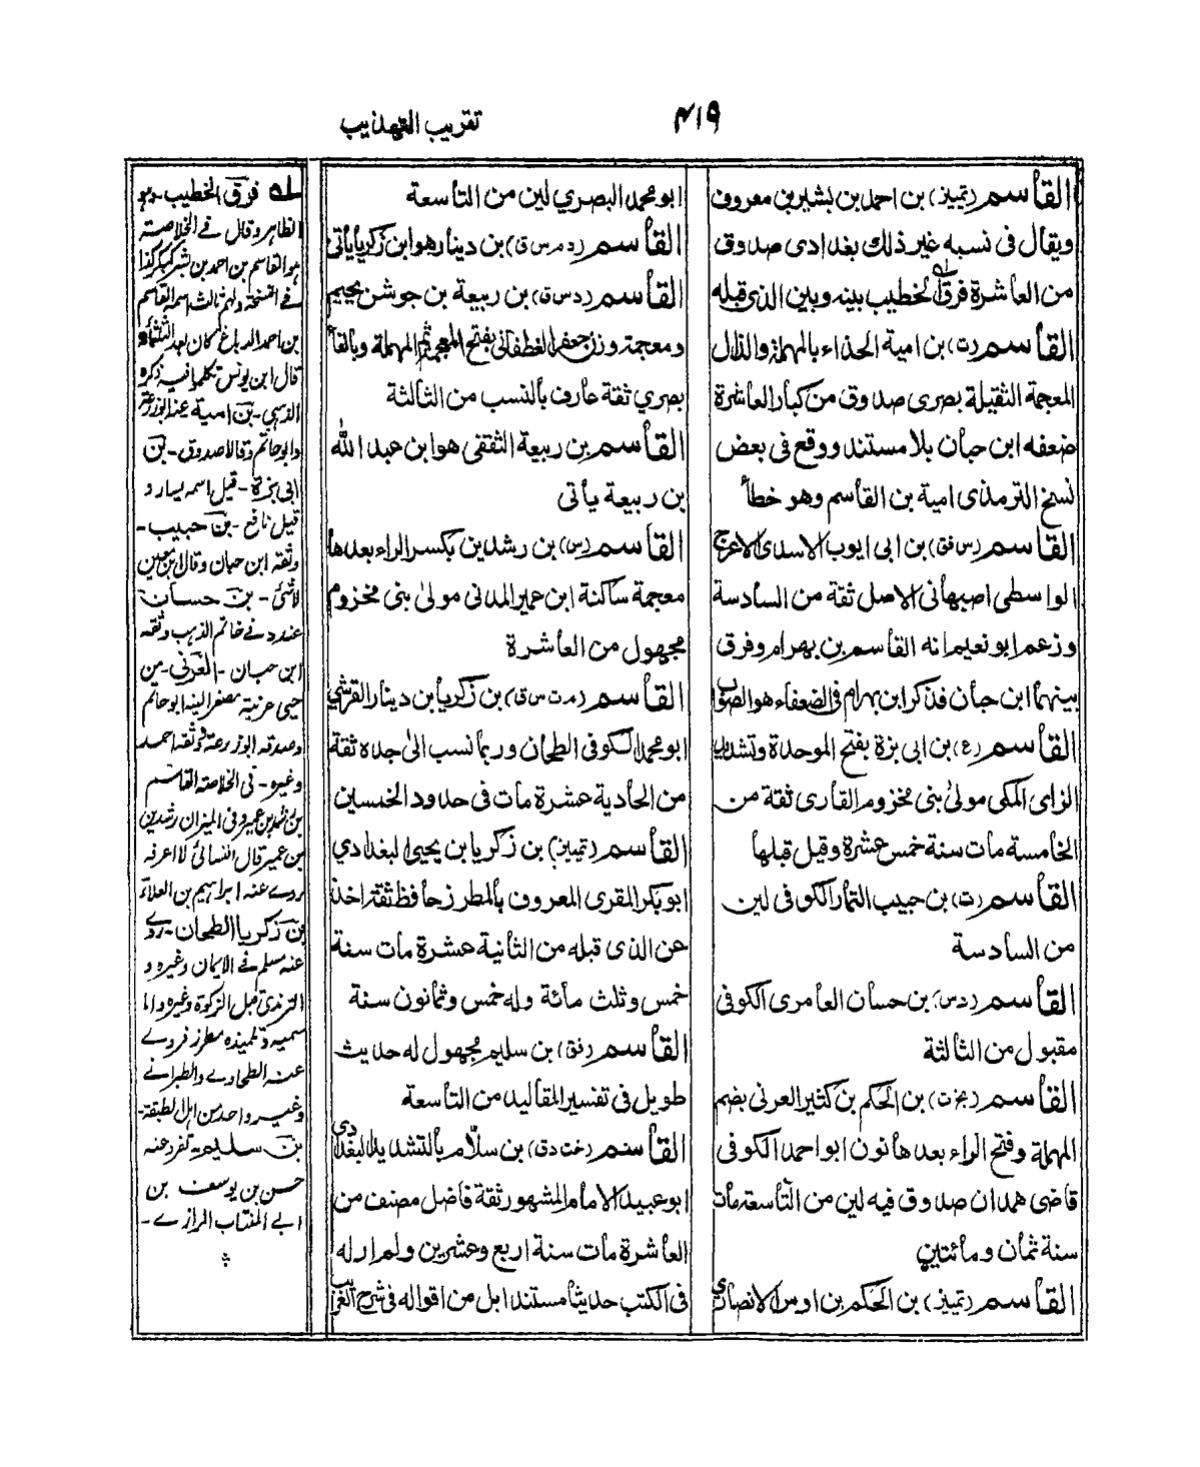 ٤١٩
تقريب التهذيب
القاسم (تمييز) بن احمد بن بشير بن معروف
ويقال فى نسبه غير ذلك بغدادى صدوق
من العاشرة فرق الخطيب بينه وبين الذى قبله
القاسم (ت) بن امية الحذاء بالمهملة والذال
المعجمة الثقيلة بصرى صدوق من كبار العاشرة
ضعفه ابن حبان بلا مستند ووقع فى بعض
نسخ الترمذى امية بن القاسم وهو خطأ
القاسم (س فق) بن ابى ايوب الاسدى الاعرج
الواسطى اصبهانى الاصل ثقة من السادسة
وزعم ابو نعيم انه القاسم بن بهرام وفرق
بينهما ابن حبان فذكر ابن بهرام فى الضعفاء هو الصواب
القاسم (ع) بن ابى بزة بفتح الموحدة وتشديد
الزاى المكى مولى بنى مخزوم القارى ثقة من
الخامسة مات سنة خمس عشرة وقيل قبلها
القاسم (ت) بن حبيب التمار الكوفى لين
من السادسة
القاسم (دس) بن حسان العامرى الكوفى
مقبول من الثالثة
القاسم (بخ ت) بن الحكم بن كثير العرنى بضم
المهملة وفتح الراء بعدها نون ابو احمد الكوفى
قاضى همدان صدوق فيه لين من التاسعة مات
سنة ثمان ومائتين
القاسم (تمييز) بن الحكم بن اوس الانصارى
ابو محمد البصري لين من التاسعة
القاسم (د م س ق) بن دينار هو ابن زكريا يأتى
القاسم (دس ق) بن ربيعة بن جوشن بجيم
ومعجمة وزن جعفر الغطفانى بفتح المعجمة ثم المهملة وبالفاء
بصري ثقة عارف بالنسب من الثالثة
القاسم بن ربيعة الثقفى هو ابن عبد الله
بن ربيعة يأتى
القاسم (س) بن رشدين بكسر الراء بعدها
معجمة ساكنة ابن عمير المدنى مولى بنى مخزوم
مجهول من العاشرة
القاسم (م ت س ق) بن زكريا بن دينار القرشي
ابو محمد الكوفى الطحان وربما نسب الى جده ثقة
من الحادية عشرة مات فى حدود الخمسين
القاسم (تمييز) بن زكريا بن يحيى البغدادي
ابو بكر المقرى المعروف بالمطرز حافظ ثقة اخذ
عن الذى قبله من الثانية عشرة مات سنة
خمس وثلث مائة وله خمس وثمانون سنة
القاسم (فق) بن سليم مجهول له حديث
طويل فى تفسير المقاليد من التاسعة
القاسم (خت دق) بن سلّام بالتشديد البغدادى
ابو عبيد الامام المشهور ثقة فاضل مصنف من
العاشرة مات سنة اربع وعشرين ولم ار له
فى الكتب حديثا مستندا بل من اقواله فى شرح الغريب
له فرق الخطيب - وهو
الظاهر وقال فے الخلاصة
هو القاسم بن احمد بن بشر كذا
فے النسخة ولهم ثالث اسمه القاسم
بن احمد الدباغ كان بعد الثلثمائة
قال ابن يونس تكلموا فيه ذكره
الذهبي - بن امية عنه ابو زرعة
وابو حاتم وقالا صدوق - بن
ابى بزة - قيل اسمه يسار و
قيل نافع - بن حبيب -
وثقه ابن حبان وقال ابن معين
لاشئ - بن حسان
عنه د فے خاتم الذهب وثقه
ابن حبان - العرنى - من
حيى عرنية مصغر البنه ابو حاتم
وصدقه ابو زرعة وثقه احمد
وغيره - فى الخلاصة القاسم
بن رشدين بن عمير وفى الميزان رشدين
بن عمير قال النسائى لا اعرفه
روے عنه ابراهيم بن العلاء
بن زكريا الطحان - روے
عنه مسلم فے الايمان وغيره و
الترمذى قبل الزكوة وغيره واما
سميه وتلميذه مطرز فروے
عنه الطحاوے والطبرانے
وغير واحد من اهل الطبقة -
بن سليم - تفرد عنه
حسن بن يوسف بن
ابے المنتاب الرازے -